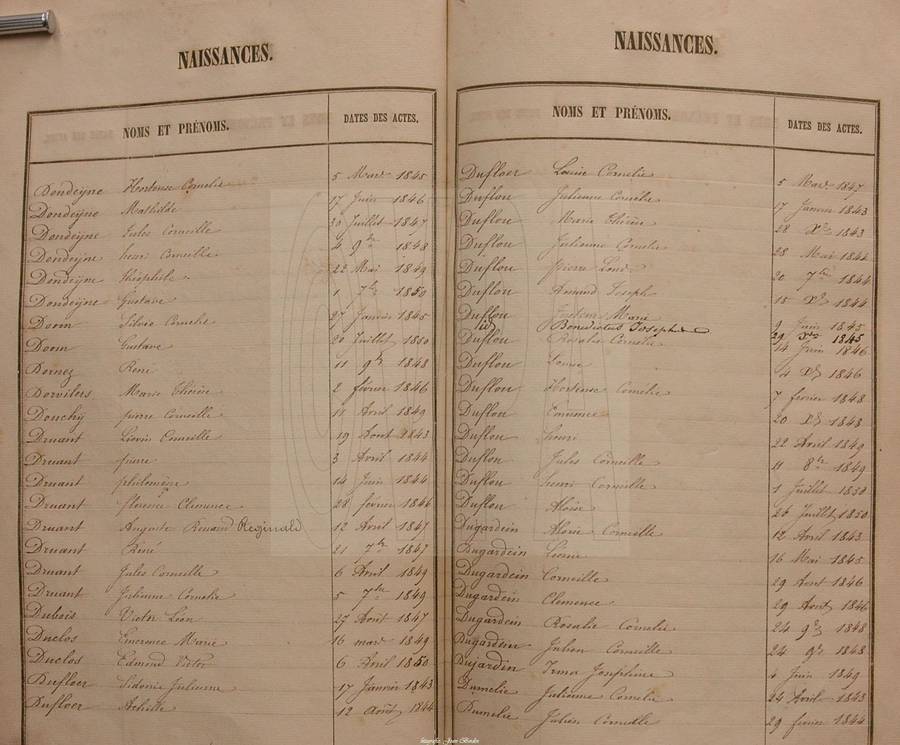 NAISSANCES.
NOMS ET PRÉNOMS. DATES DES ACTES.
Dondeyne Hortense Cornelie 5 Mars 1845
Dondeyne Mathilde 17 Juin 1846
Dondeyne Jules Corneille 20 Juillet 1847
Dondeyne henri Corneille 4 9bre 1848
Dondeyne théophile 22 Mai 1849
Dondeyne Gustave 1 7bre 1850
Doom Silvie Cornelie 27 Janvier 1845
Doom Gustave 20 Juillet 1850
Dornez René 11 9bre 1848
Dorvilers Marie Thérèse 2 février 1846
Douchy pierre Corneille 11 Avril 1849
Druant Liévin Corneille 19 Aout 1843
Druant pierre 3 Avril 1844
Druant philomène 14 Juin 1844
Druant florence Clemence 28 février 1846
Druant Auguste Renaud Reginald 12 Avril 1847
Druant René 21 7bre 1847
Druant Jules Corneille 6 Avril 1849
Druant Julienne Cornelie 5 7bre 1849
Dubois Victor Léon 27 Août 1847
Duclos Emerance Marie 16 mars 1849
Duclos Edmond Victor 6 Avril 1850
Dufloer Sidonie Julienne 17 Janvier 1843
Dufloer Achille 12 Août 1844
NAISSANCES.
NOMS ET PRÉNOMS. DATES DES ACTES.
Dufloer Louise Cornelie 5 Mars 1847
Duflou Julienne Cornélie 17 Janvier 1843
Duflou Marie Thérèse 28 Xbre 1843
Duflou Julienne Cornelie 28 Mai 1844
Duflou pierre Louis 20 7bre 1844
Duflou Amand Joseph 15 Xbre 1844
Duflou Marie Juin 1845
Benedictus Josephus 29 1845
Duflou Rosalie Cornelie 14 Juin 1846
Duflou Louise 4 Xbre 1846
Duflou Hortense Cornélie 7 février 1848
Duflou 20 Xbre 1848
Duflou henri 22 Avril 1849
Duflou Jules Corneille 11 8bre 1849
Duflou henri Corneille 1 Juillet 1850
Duflou Aloïse 26 Juillet 1850
Dugardein Aloïse Corneille 12 Avril 1843
Dugardein Léonie 16 Mai 1845
Dugardein Corneille 29 Aout 1846
Dugardein Clemence 29 Aout 1846
Dugardein Rosalie Cornélie 24 9bre 1848
Dugardein Julien Corneille 24 9bre 1848
Dujardin Irma Josephine 4 Juin 1849
Dumelie Julienne Cornelie 24 Avril 1843
Dumelie Julien Corneille 29 février 1844